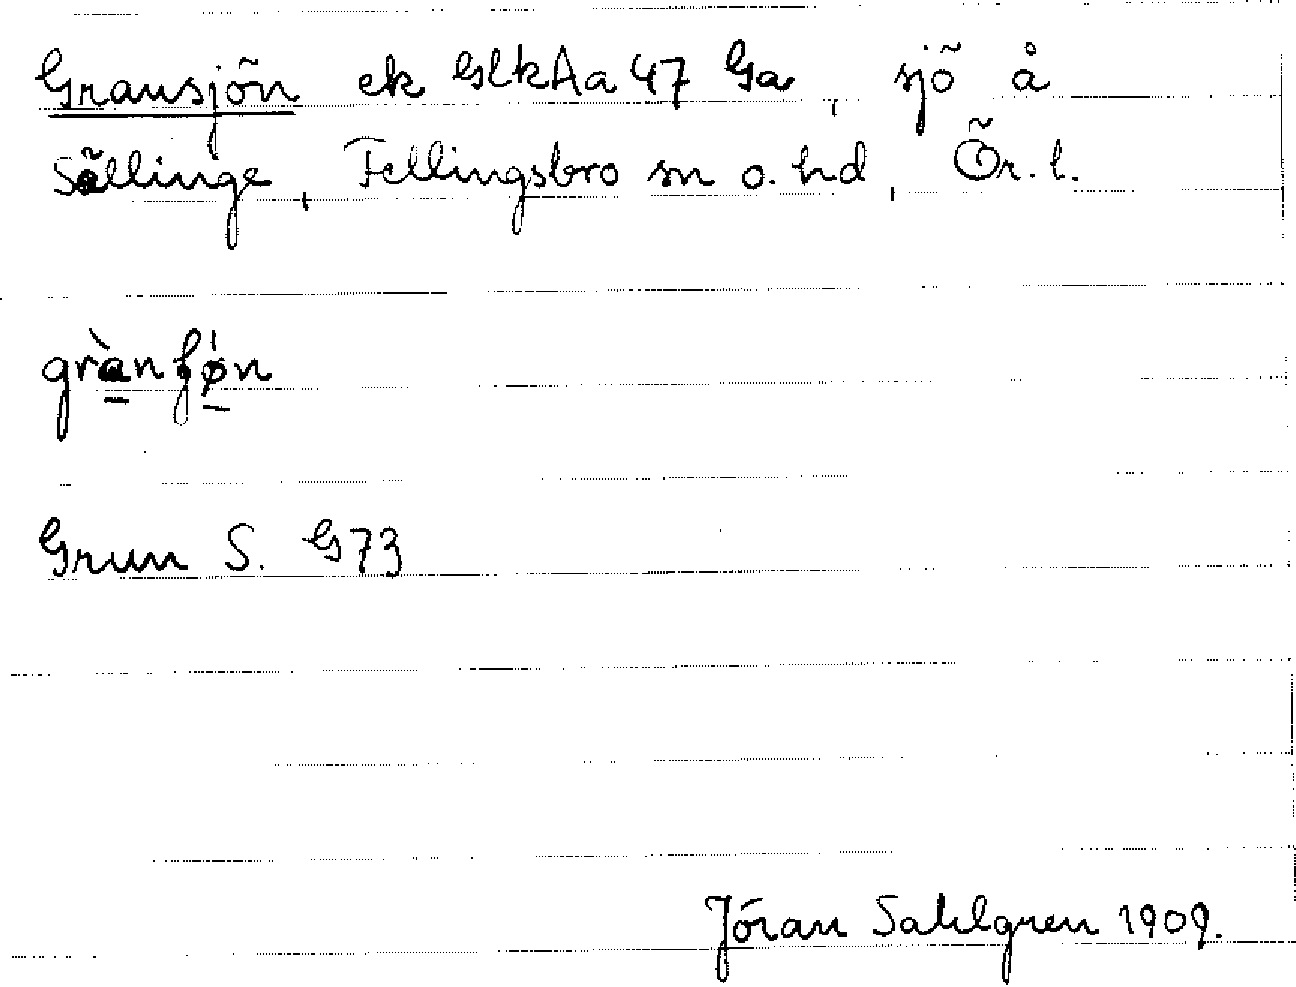 Gransjön ek GlkAa 47 Ga, sjö å
Sällinge, Fellingsbro sn o. hd, Ör. l.
grànʃø̀n
Grun S. G73
Jöran Sahlgren 1909.